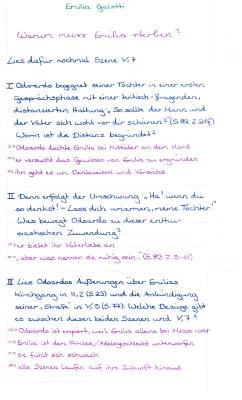 Emilia Galotti
Warum muss Emilia sterben?
Lies dafür nochmal Szene V,7
I Odoardo begegnet seiner Tochter in einer ersten
Gesprächsphase mit einer kritisch-fragenden,
distanzierten Haltung: „So sollte der Mann und
der Vater sich wohl vor dir schämen?" (S.82 Z.
Worin ist die Distanz begründet?
⇒ Odoardo dachte Emilia sei Mittäter an dem Mord
⇒ er versucht das Gewissen von Emilia zu ergründen
⇒ ihn geht es um Denkweisen und Vorsätze
II Dann erfolgt der Umschwung: „Ha! wenn du
so denkst! - Lass dich umarmen, meine Tochter!"
Was bewegt Odoardo zu dieser enthu-
siastischen Zuwendung?
⇒ er bietet ihr Vaterliebe an
⇒ „aber was nennen sie ruhig sein... (S.83 Z. 3-11)
III Lies Odoardos Äußerungen über Emilias
Kirchgang in II,2 (S.23) und die Ankündigung
seiner „Strafe" in V,5 (S.77). Welche Bezüge gibt
es zwischen diesen beiden Szenen und V,7?
⇒ Odoardo ist empört, weil Emilia alleine bei Messe war
⇒ Emilia ist den Prinzen/Adelsgeschlecht unterworfen
⇒ sie fühlt sich schwach
⇒ alle Szenen laufen auf ihre Zukunft hinaus